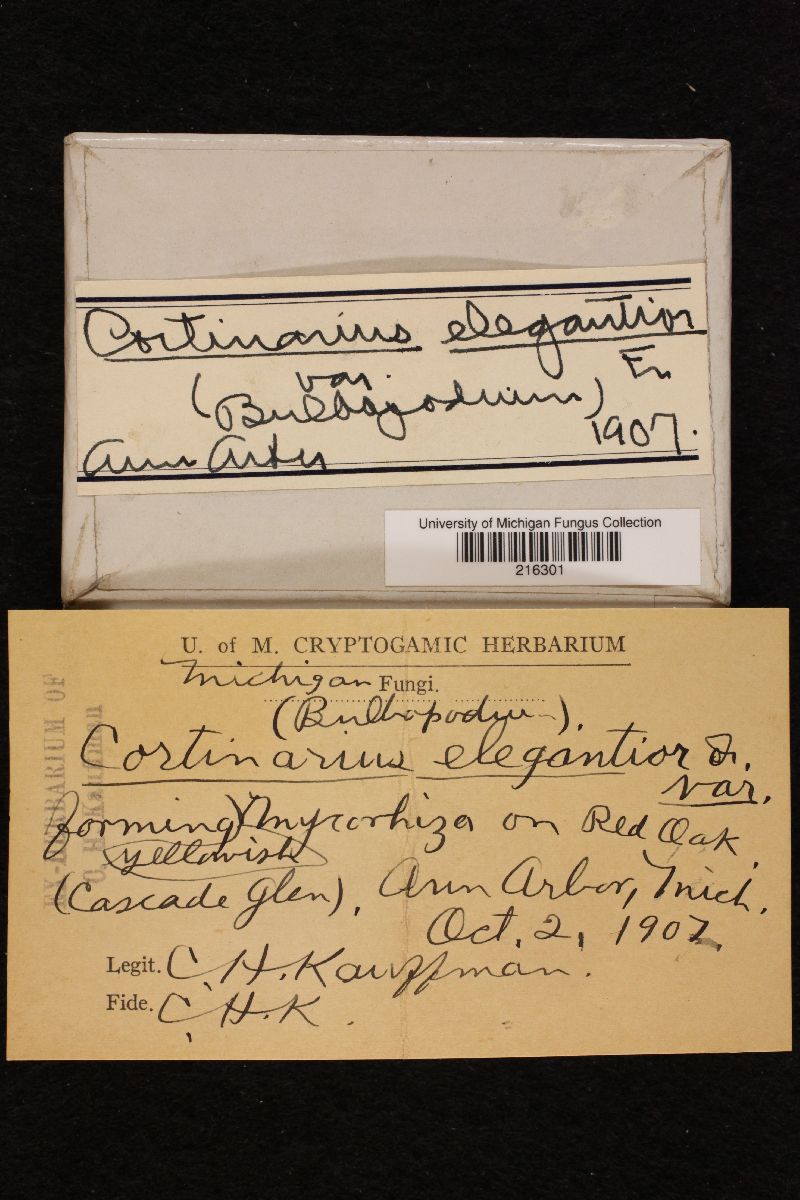 Cortinarius elegantior
var. Fr
(Bulbopodium)
Ann Arbor 1907.
University of Michigan Fungus Collection
216301
U. of M. CRYPTOGAMIC HERBARIUM
Michigan Fungi.
(Bulbopodium).
Cortinarius elegantior Fr.
var.
forming Mycorhiza on Red Oak
yellowish
(Cascade Glen), Ann Arbor, Mich.
Oct. 2, 1907.
Legit. C. H. Kauffman.
Fide. C. H. K.
EX-HERBARIUM OF
C. H. Kauffman